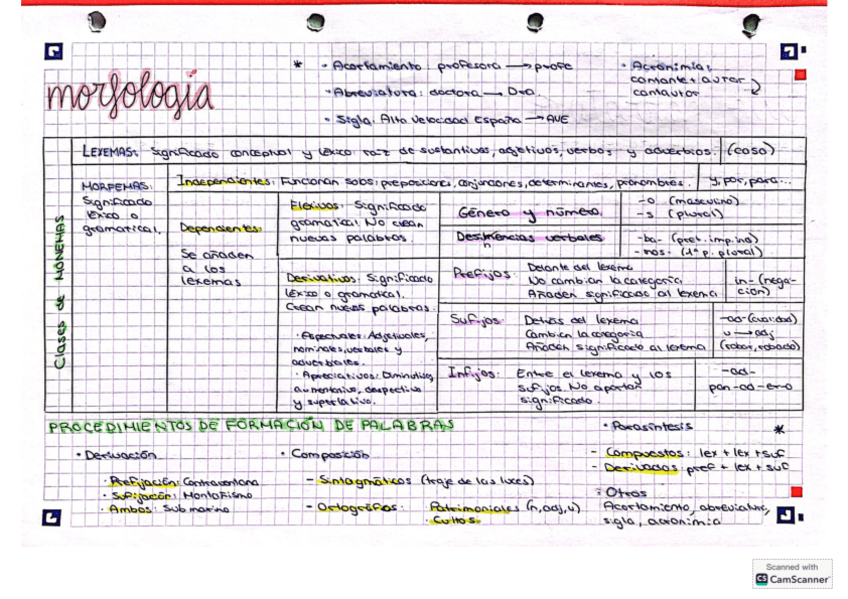 morfología
* · Acortamiento: profesora → profe
· Abreviatura: doctora → Dra.
· Sigla: Alta Velocidad España → AVE
· Acronimia:
cantante + autor
cantautor
Clases de MONEMAS
LEXEMAS: Significado conceptual y léxico: raíz de sustantivos, adjetivos, verbos y adverbios. (casa)
MORFEMAS:
Significado
léxico o
gramatical.
Independientes: Funcionan solos: preposiciones, conjunciones, determinantes, pronombres. y, por, para...
Dependientes:
Se añaden
a los
lexemas
Flexivos: Significado
gramatical. No crean
nuevas palabras.
Género y número.
-o (masculino)
-s (plural)
Desinencias verbales
-ba- (pret. imp. ind)
-mos- (1ª p. plural)
Derivativos: Significado
léxico o gramatical.
Crean nuevas palabras.
· Aspectuales: Adjetivales,
nominales, verbales y
adverbiales.
· Apreciativos: Diminutivo,
aumentativo, despectivo
y superlativo.
Prefijos: Delante del lexema
No cambian la categoría
Añaden significado al lexema
in- (nega-
ción)
Sufijos: Detrás del lexema
Cambian la categoría
Añaden significado al lexema
-ad- (cualidad)
v → adj
(robar, robado)
Infijos: Entre el lexema y los
sufijos. No aportan
significado.
-ad-
pan-ad-ero
PROCEDIMIENTOS DE FORMACIÓN DE PALABRAS
· Derivación
· Prefijación: Contraventana
· Sufijación: Montañismo
· Ambos: Submarino
· Composición
- Sintagmáticos (traje de las luces)
- Ortográficos: Patrimoniales (n, adj, v)
· Cultos.
· Parasíntesis *
- Compuestos: lex + lex + suf
- Derivados: pref + lex + suf
· Otros
Acortamiento, abreviatura,
sigla, acronimia
Scanned with
CS CamScanner